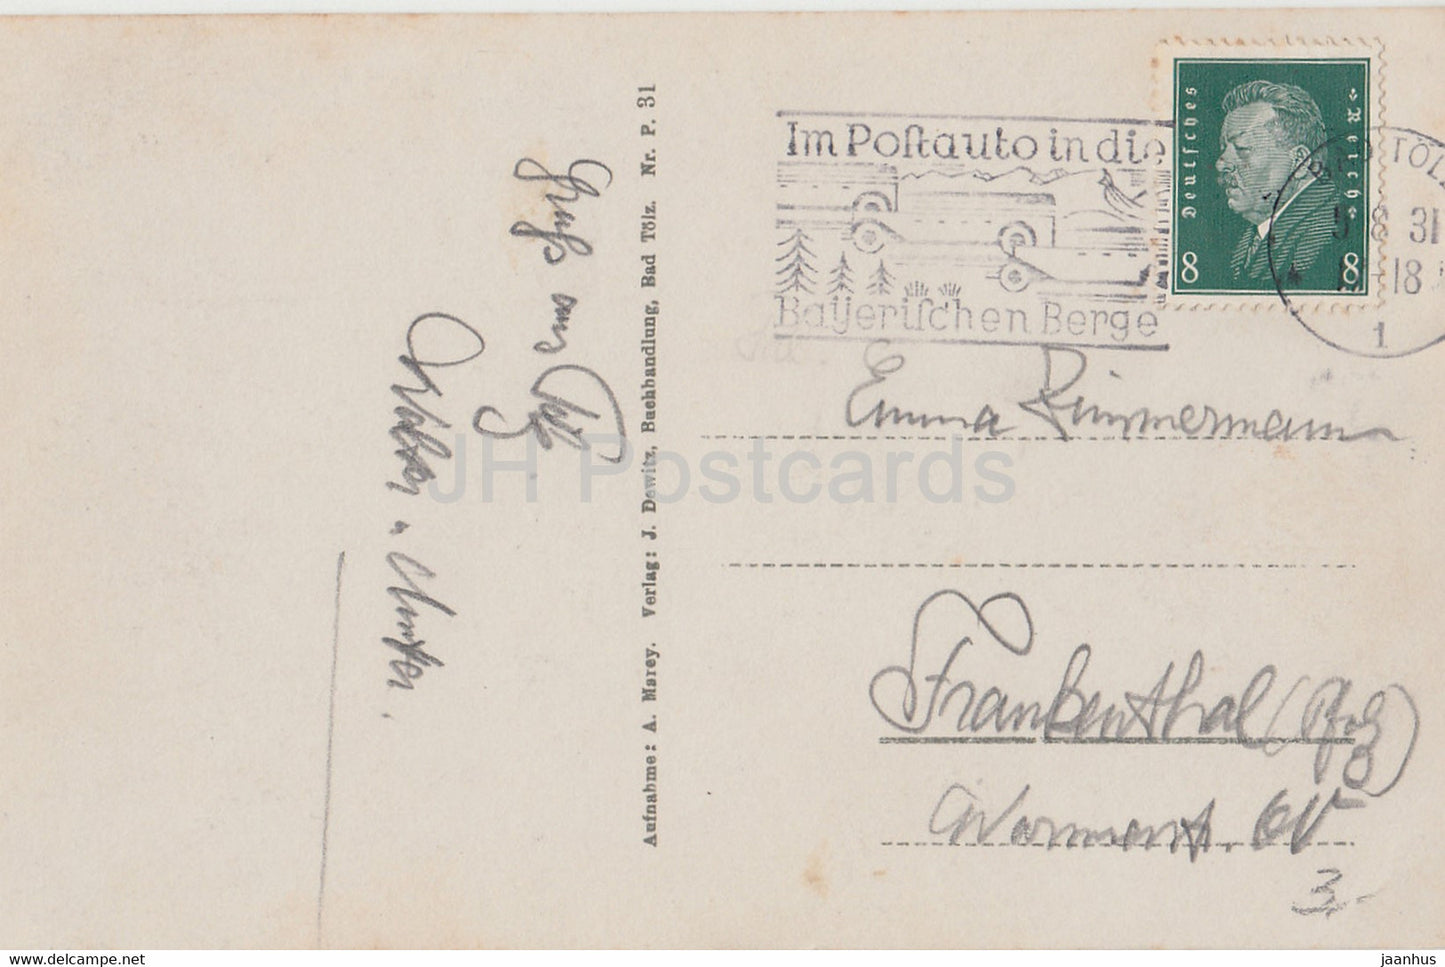 Im Poſtauto in die
Bayeriſchen Berge
Deutſches Reich
8 8
BAD TÖLZ
5 8 31
18
1
Gruß aus Tölz
u. Mutter.
Aufnahme: A. Marey. Verlag: J. Dewitz, Buchhandlung, Bad Tölz. Nr. P. 31
Emma Zimmermann
Frankenthal (Pfalz)
JH Postcards
www.delcampe.net
jaanhus